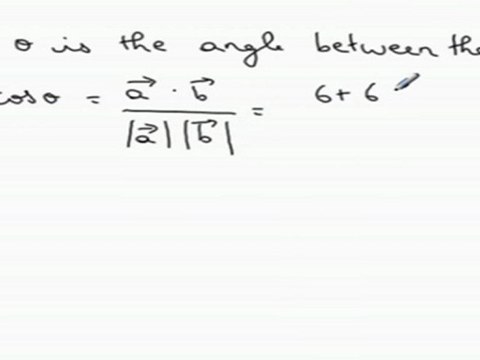 θ is the angle between the
cos θ = a⃗ · b⃗ / |a⃗| |b⃗| = 6 + 6